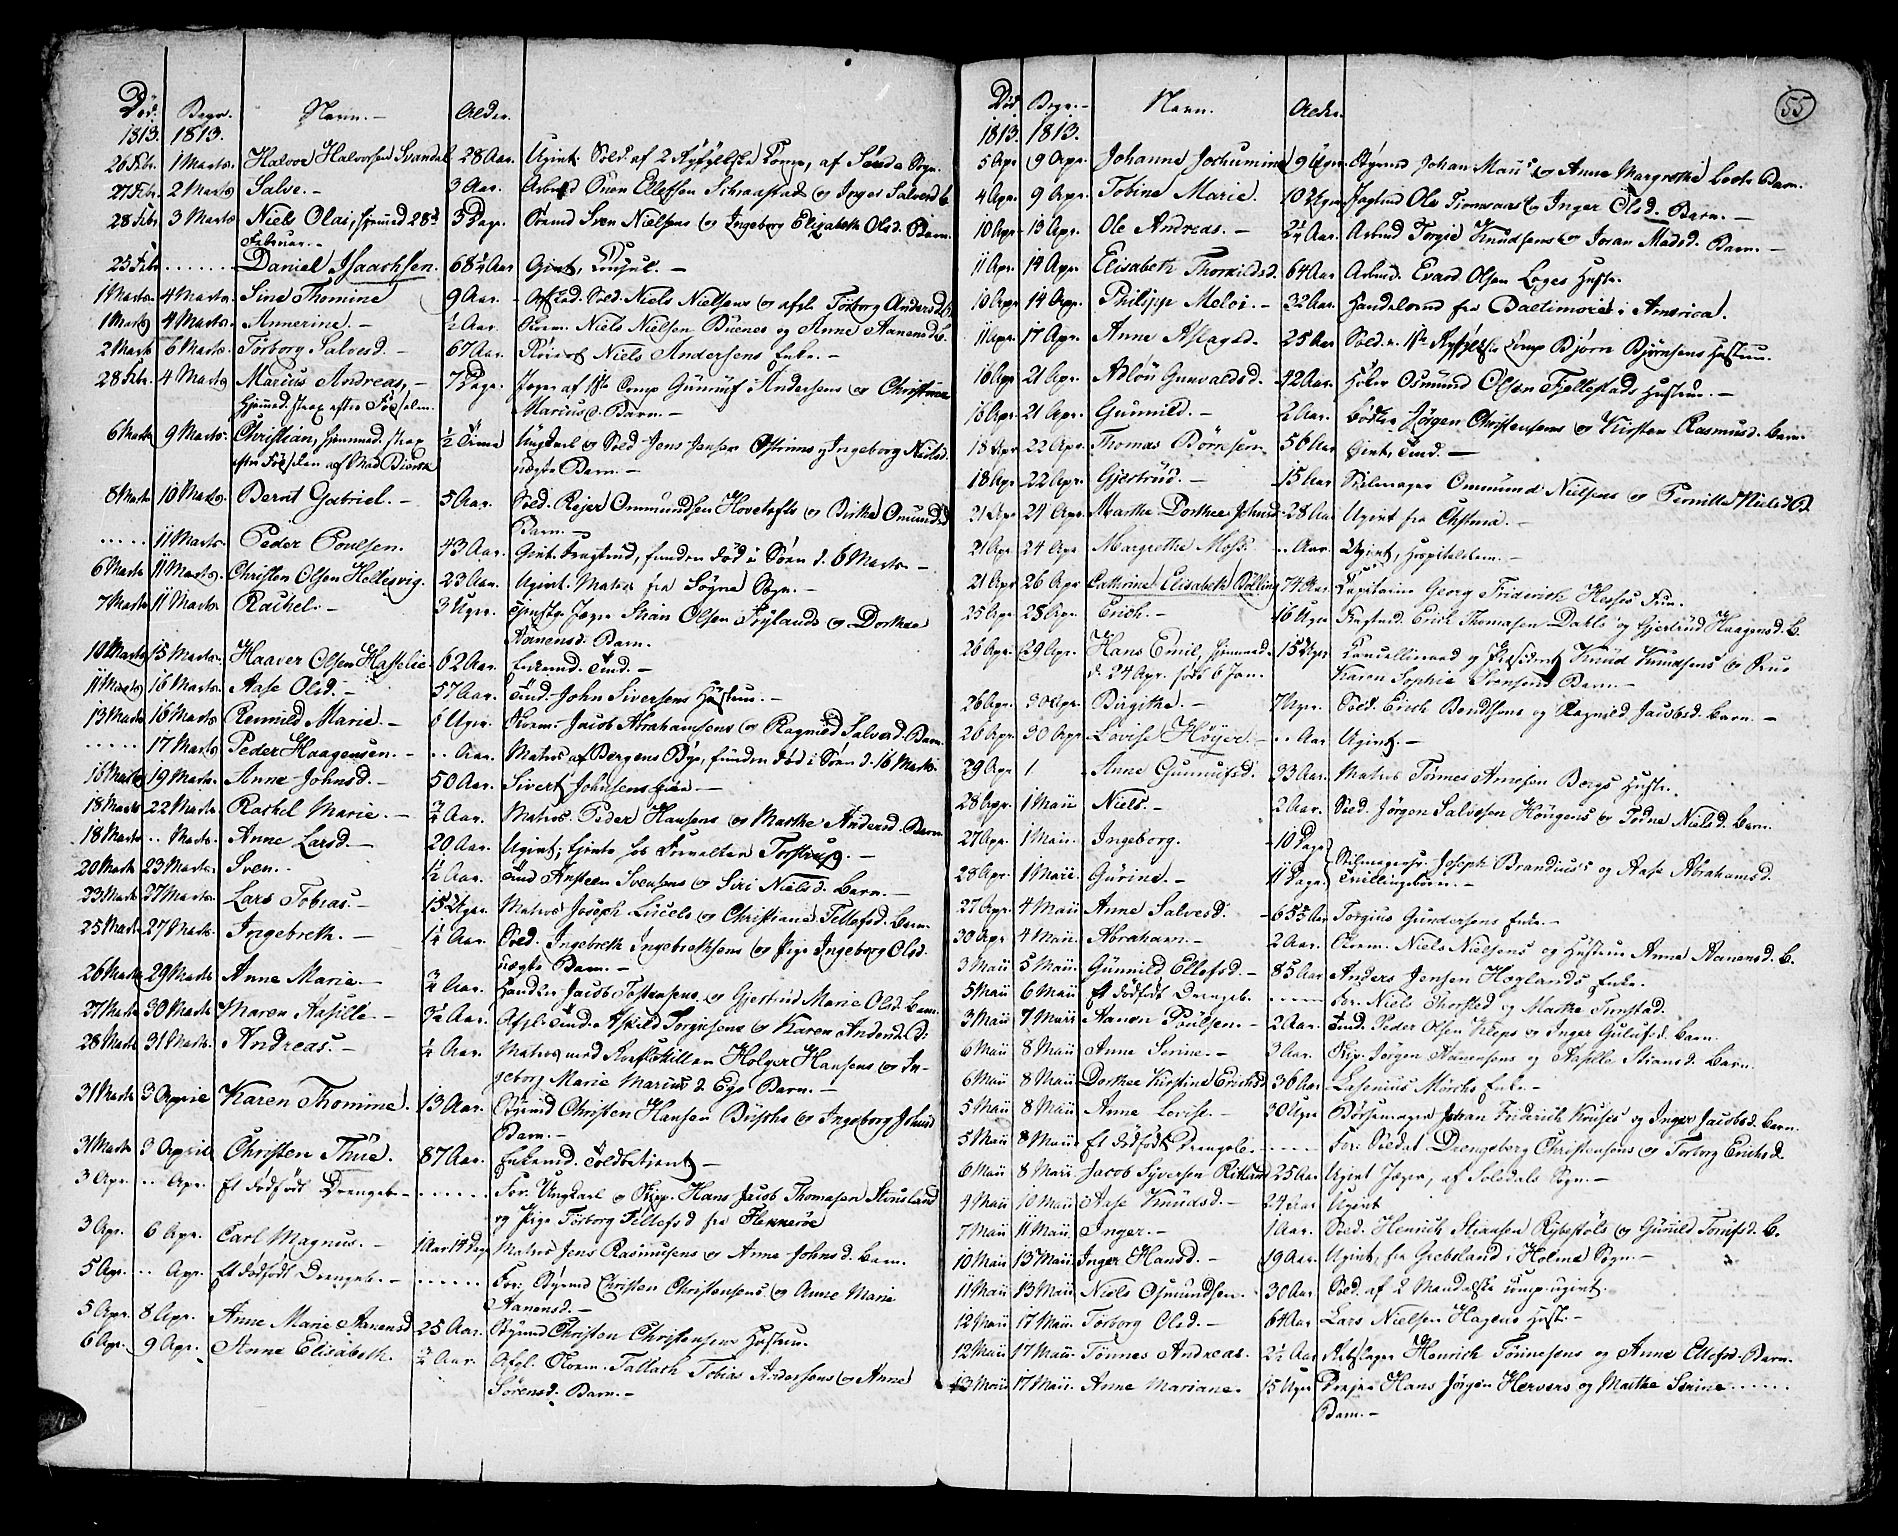 Død. Begr. Navn. - Alder.
1813. 1813.
26 Febr. 1 Marts. Halvor Halvorsen Svandal 28 Aar. Ugivt. Sold. af 2 Ryfylkske Comp. af Sogn.
27 Febr. 2 Marts. Salve. - 3 Aar. Arbmd Ellefsen og Inger Salvesd B.
28 Febr 3 Marts Niels Olai, hjemmed 28de 3 Dage. Sømd Sven Nielsens og Ingeborg Elizabeth Olsd. Barn.
Februar. -
25 Febr ...... Daniel Isaachsen. 68½ Aar Givt, Consul. -
1 Marts. 4 Marts. Sine Thomine 9 Aar. Afskd. Sold. Niels Nielsens og afl. Torborg Andersd B.
1 Marts 4 Marts. Annerine. - ½ Aar. Korm. Niels Nielsen Buenes og Anne Aanensd B.
2 Marts 6 Marts. Torborg Salvesd. - 67 Aar. Niels Andersens Enke. -
28 Febr. 4 Marts. Marius Andreas, - 7 Dage. Jæger af 1ste Comp Gunuf Andersens og Christine
hjemmed. strax efter Fødselen. Mariusd. Barn. -
6 Marts 9 Marts. Christian, hjemmed. strax ½ Time Ungkarl og Sold Jens Jensen og Ingeborg Nielsd.
efter Fødselen af Mad Biørn uægte Barn. -
8 Marts 10 Marts. Bernt Gabriel. - 5 Aar. Sold. Rejer Ommundsen Hovetofte og Birthe Omundsd
Barn. -
..... 11 Marts. Peder Poulsen. 43 Aar. Givt. funden død i Søen d. 6 Marts. -
6 Marts 11 Marts. Christen Olsen Hellesvig. 23 Aar. Ugivt. Matros fra Søgne Sogn. -
7 Marts 11 Marts. Rachel. - 3 Uger. Jæger Stian Olsen Frylands og Dorthea
Aanensd. Barn.
10 Marts 15 Marts. Haaver Olsen 62 Aar. Enkemd. Tind. -
11 Marts 16 Marts. Aase Olsd. - 57 Aar. Tind. John Siversens Hustrue. -
13 Marts 16 Marts Renild Marie. - 6 Uger. Korm. Jacob Abrahamsens og Ragnild Salvesd. Barn
..... 17 Marts Peder Haagensen. - .. Aar. Matros af Bergens Bye, funden død i Søen d. 16 Marts.
16 Marts 19 Marts. Anne Johnsd. - 50 Aar. Sivert Johnsens -
18 Marts 22 Marts. Rachel Marie. - ¾ Aar. Matros. Peder Hansens og Marthe Andersd. Barn
18 Marts. .. Marts. Anne Larsd. - 20 Aar. Ugivt, tjente hos Forvalter Torstrup. -
20 Marts 23 Marts. Sven. ½ Aar. Tind Ansteen Svensens og Siri Nielsd. Barn. -
23 Marts. 27 Marts. Lars Tobias. - 15 Uger. Matros Joseph og Christiane Tellefsd. Barn.
25 Marts 27 Marts. Ingebreth. - 1¼ Aar. Sold. Ingebreth Ingebrethsens og Pige Ingeborg Olsd.
uægte Barn. -
26 Marts 29 Marts Anne Marie. - ¾ Aar. Handler Jacob Tostensens og Gjertrud Marie Olsd. Barn
27 Marts 30 Marts Maren Aasille. - 3½ Aar. Afsk. Tind. Askild Torgiusens og Karen Andersd. B.
28 Marts 31 Marts. Andreas. - ¼ Aar. Matros ved Holger Hansens og In-
geborg Marie Mariusd. Barn. -
31 Marts 3 April Karen Thomine. 13 Aar. Byemd Christen Hansen og Ingeborg Johnsd
Barn. -
31 Marts 3 April Christen Thue. 87 Aar. Enkemd. Toldbetjent. -
3 Apr. .. Apr. Et dødfødt Drengeb. - ...... For. Ungkarl og Skipp. Hans Jacob Thomasen Stensland
og Pige Torborg Tellefsd fra Flekkerøe
3 Apr. 6 Apr. Carl Magnus. - 1 Aar 14 Dage Matros Jens Rasmusens og Anne Johnsd. Barn.
5 Apr. .. Apr. Et dødfødt Drengeb. - ...... For. Byemd Christen Christensens og Anne Marie
Aanensd. -
5 Apr. 8 Apr. Anne Marie Aanensd 25 Aar. Byemd Christen Christensens Hustrue.
6 Apr. 9 Apr. Anne Elisabeth. ¾ Aar. Afsk. Korm. Tallach Tobias Andersens og Anne
Sørensd. Barn. -
55
Død Begr. - Navn. Alder.
1813. 1813.
5 Apr 9 Apr. Johanne Jochumine 9 Uger. Byemd Johan og Anne Margrethe Barn.
4 Apr. 9 Apr. Tobine Marie. 10 Uger Ole og Inger Olsd. Barn. -
10 Apr. 13 Apr. Ole Andreas. - 2¼ Aar. Arbmd Torgie Knudsens og Joran Madsd. Barn. -
11 Apr. 14 Apr. Elisabeth Thorkildsd. 64 Aar. Arbmd. Evard Olsen Løges Hustr.
10 Apr 14 Apr. Philipp Meloi. - 32 Aar. Handelsmd fra Baltimore i America.
11 Apr. 17 Apr. Anne Aslagsd. 25 Aar Sold. v. 1ste Ryfylkske Comp Bjørn Bjørnsens Hustrue.
16 Apr 21 Apr. Adlou Gunvaldsd. 42 Aar. Osmund Olsen Fjellestads Hustrue. -
18 Apr 21 Apr. Gunnild. - 2 Aar. Bødker Jørgen Christensens og Kirsten Rasmusd. Barn.
18 Apr. 22 Apr. Thomas Børresen 56 Aar Givt, Tind. -
18 Apr 22 Apr. Gjertrud. - 15 Aar Seilmager Ommund Nielsens og Pernille Nielsd B
21 Apr 24 Apr. Marthe Dorthea Johnsd. 28 Aar Ugivt fra Chstina. -
21 Apr 24 Apr. Margrethe Moss. .. Aar. Ugivt, Hospitalslem. -
21 Apr 26 Apr Cathrine Elisabeth Bølling 74 Aar. Capitaine Georg Friderich Hesses Frue.
25 Apr 28 Apr. Erich. - 16 Uger Erich Thomasen Dahls og Gjertrud Haagensd. B.
26 Apr 29 Apr. Hans Emil, hjemmed. 15 Uger. Cancelliraad og Præsident Knud Knudsens og Frue
d. 24 Apr. født 6 Jan. Karen Sophie Svensens Barn. -
26 Apr. 30 Apr. Birgithe. - 7 Uger. Sold. Erich Bendtsens og Ragnild Jacobsd. Barn. -
26 Apr. 30 Apr Lovise Høyer. - .. Aar Ugivt. -
29 Apr 1. Anne Gunnufsd. 33 Aar. Matros Tønnes Arnesen Bergs Hustr.
28 Apr. 1 Maii Niels. - 2 Aar. Sold. Jørgen Salvesen Hougens og Tone Nielsd. Barn.
27 Apr. 1 Maii. Ingeborg. 10 Dage Joseph og Aase Abrahamsd.
28 Apr. 1 Maii Gurine. - 11 Dage Tvillingebørn. -
27 Apr. 4 Maii Anne Salvesd. 65 Aar Torgius Gundersens Enke. -
30 Apr 4 Maii Abraham. - 2 Aar. Korm. Niels Nielsens og Hustrue Anne Aanensd. B.
3 Maii 5 Maii. Gunnild Ellefsd. - 85 Aar Anders Jensen Høglands Enke. -
5 Maii 6 Maii Et dødfødt Drengeb. ...... Br. Niels Thorsted og Marthe
3 Maii 7 Maii Aanen Poulsen. - 2 Aar. Tind. Peder Olsen Kleps og Inger Gulufsd. Barn.
6 Maii 8 Maii Anne Serine. - 3 Aar. Skip. Jørgen Aanensens og Aasille Stiansd. Barn.
6 Maii 8 Maii Dorthea Kirstine Erichsd. 36 Aar Mørchs Enke. -
5 Maii 8 Maii Anne Lovise. - 30 Uger Bøssemager Johan Friderich Kruses og Inger Jacobsd. Barn.
5 Maii 8 Maii. Et dødfødt Drengeb. ...... For. Soldat Drengeberg Christensens og Torborg Erichsd.
6 Maii 8 Maii Jacob Syversen 25 Aar Ugivt Jæger, af Soledals Sogn. -
4 Maii 10 Maii Aase Knudsd. - 24 Aar Ugivt
7 Maii 11 Maii Inger. - 1 Aar. Sold. Henrich Stiansen Rybestøls og Gunild Torjusd. B.
10 Maii 13 Maii Inger Hansd. - 19 Aar. Ugivt, fra Grebsland i Holme Sogn. -
11 Maii 13 Maii Niels Osmundsen. 30 Aar. Sold. af 2 Mandalske Comp. ugivt.
12 Maii 17 Maii. Torborg Olsd. - 64 Aar Lars Nielsen Hagens Hust. -
12 Maii 17 Maii. Tønnes Andreas. 2½ Aar Rebslager Henrich Tønnesens og Anne Ellefsd. Barn.
13 Maii 17 Maii. Anne Mariane. 15 Uger Drejer Hans Jørgen Hervers og Marthe Serine ......
Barn. -